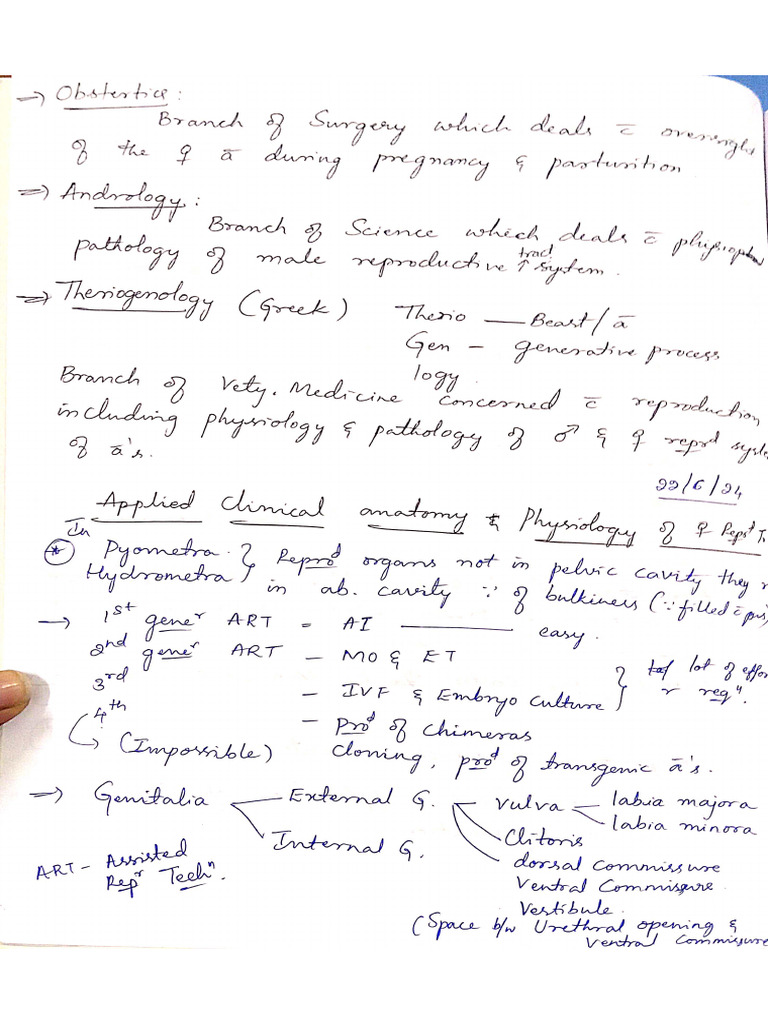 → Obstertics :
Branch of Surgery which deals c̄ oversight
of the ♀ ā during pregnancy & parturition
⇒ Andrology :
Branch of Science which deals c̄
pathology of male reproductive ↑ tract system.
⇒ Theriogenology (Greek) Therio — Beast/ā
Gen – generative process
logy.
Branch of Vety. Medicine concerned c̄ reproduction
including physiology & pathology of ♂ & ♀ reprᵈ
of ā's.
22/6/24
Applied Clinical anatomy & Physiology of ♀ Reprᵈ T.
In
⊛ Pyometra } Reproᵈ organs not in pelvic cavity they
Hydrometra } in ab. cavity ∵ of bulkiness (∵ filled c̄ pus)
→ 1st generⁿ ART = AI ——— easy.
2nd generⁿ ART – MO & ET
3rd – IVF & Embryo Culture } lot of effor
r reqⁿ.
4th – prodⁿ of chimeras
↳ (Impossible) cloning, prodⁿ of transgenic ā's.
→ Genitalia External G. Vulva labia majora
labia minora
Internal G. Clitoris
ART – Assisted dorsal Commissure
Repʳ Techⁿ. Ventral Commissure
Vestibule.
(Space b/w Urethral opening &
Ventral Commissure